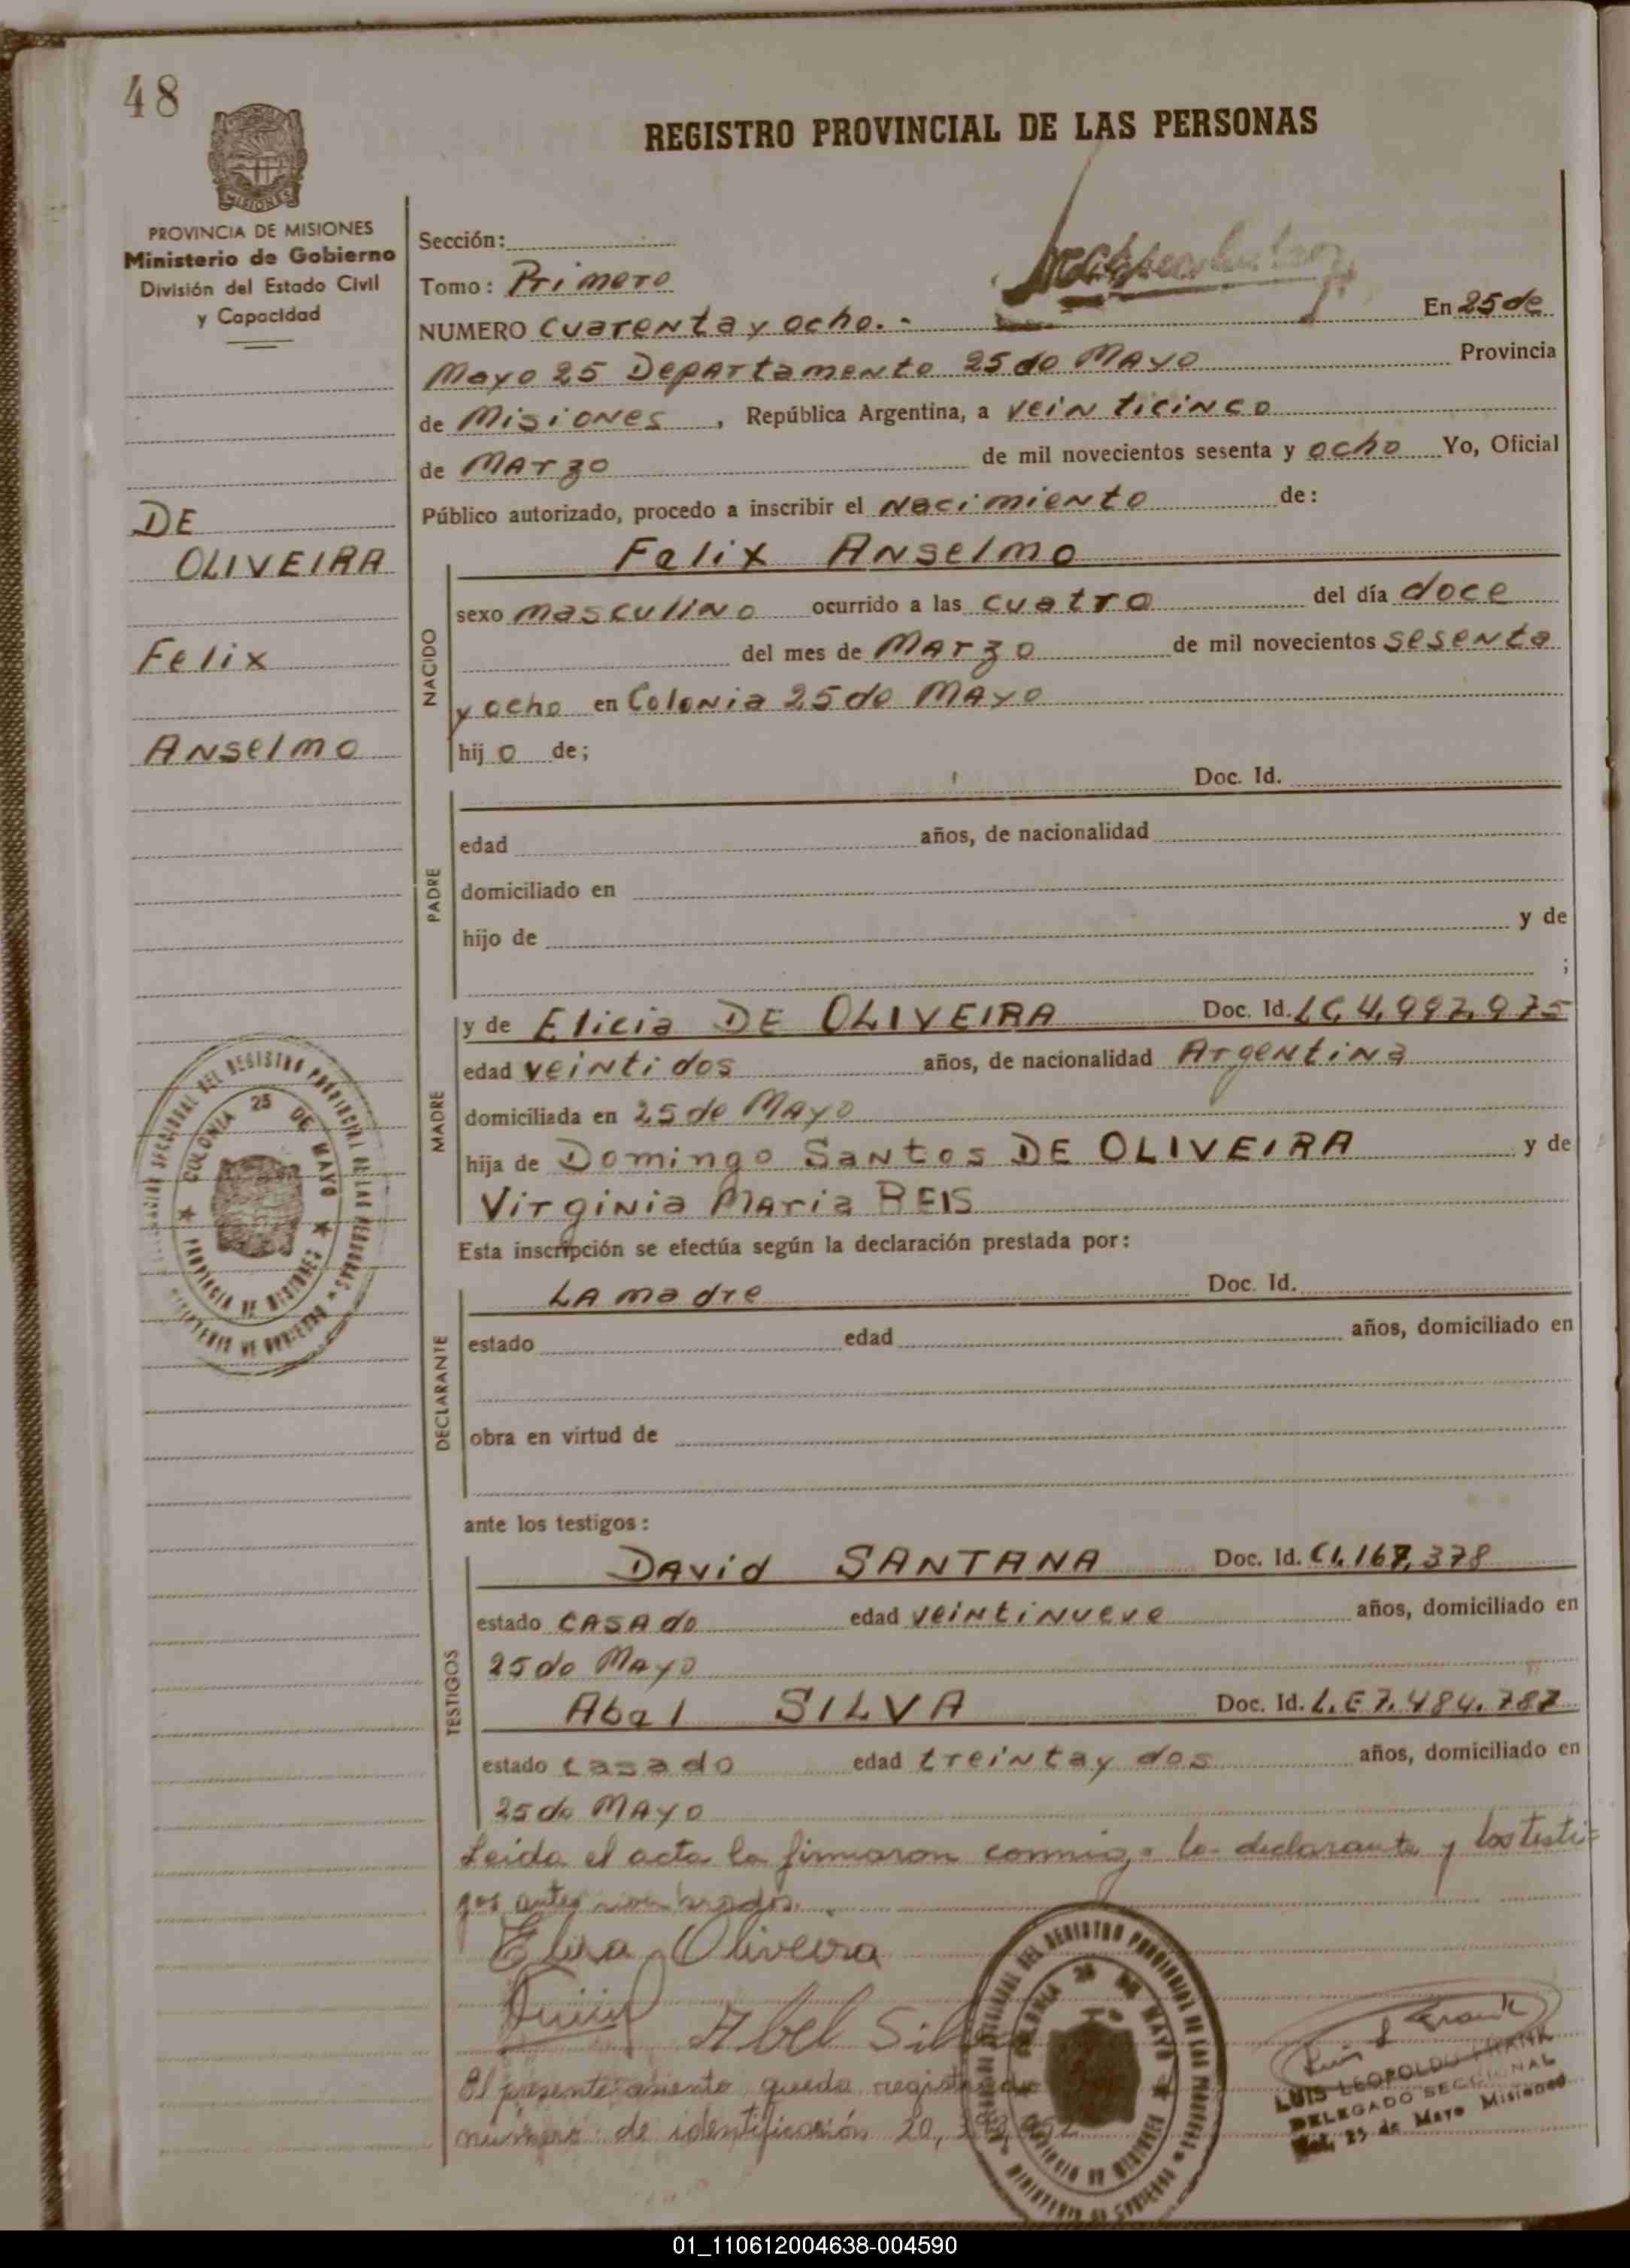 48
REGISTRO PROVINCIAL DE LAS PERSONAS
MISIONES
PROVINCIA DE MISIONES
Ministerio de Gobierno
División del Estado Civil
y Capacidad
DE
OLIVEIRA
Felix
Anselmo
Sección:
Tomo: Primero
NUMERO cuarenta y ocho.- En 25 de
Mayo 25 Departamento 25 de Mayo Provincia
de Misiones, República Argentina, a veinticinco
de Marzo de mil novecientos sesenta y ocho Yo, Oficial
Público autorizado, procedo a inscribir el nacimiento de:
NACIDO
Felix Anselmo
sexo masculino ocurrido a las cuatro del día doce
del mes de Marzo de mil novecientos sesenta
y ocho en Colonia 25 de Mayo
hijo de;
PADRE
Doc. Id.
edad años, de nacionalidad
domiciliado en
hijo de y de
;
MADRE
y de Elicia DE OLIVEIRA Doc. Id. LC, 4,992,975
edad veintidos años, de nacionalidad Argentina
domiciliada en 25 de Mayo
hija de Domingo Santos DE OLIVEIRA y de
Virginia Maria REIS
Esta inscripción se efectúa según la declaración prestada por:
DECLARANTE
LA madre Doc. Id.
estado edad años, domiciliado en
obra en virtud de
ante los testigos:
TESTIGOS
DAVID SANTANA Doc. Id. CI, 167,378
estado CASAdo edad veintinueve años, domiciliado en
25 de Mayo
Abel SILVA Doc. Id. L.E 7.484.787
estado casado edad treinta y dos años, domiciliado en
25 de MAYO
Leida el acta la firmaron conmigo la declarante y los testi=
gos antes nombrados.
Elisa Oliveira
Abel Silva
El presente asiento queda registrado
número de identificación 20,
COLONIA 25 DE MAYO
PROVINCIA DE MISIONES
LUIS LEOPOLDO FRANK
DELEGADO SECCIONAL
Col. 25 de Mayo Misiones
01_110612004638-004590